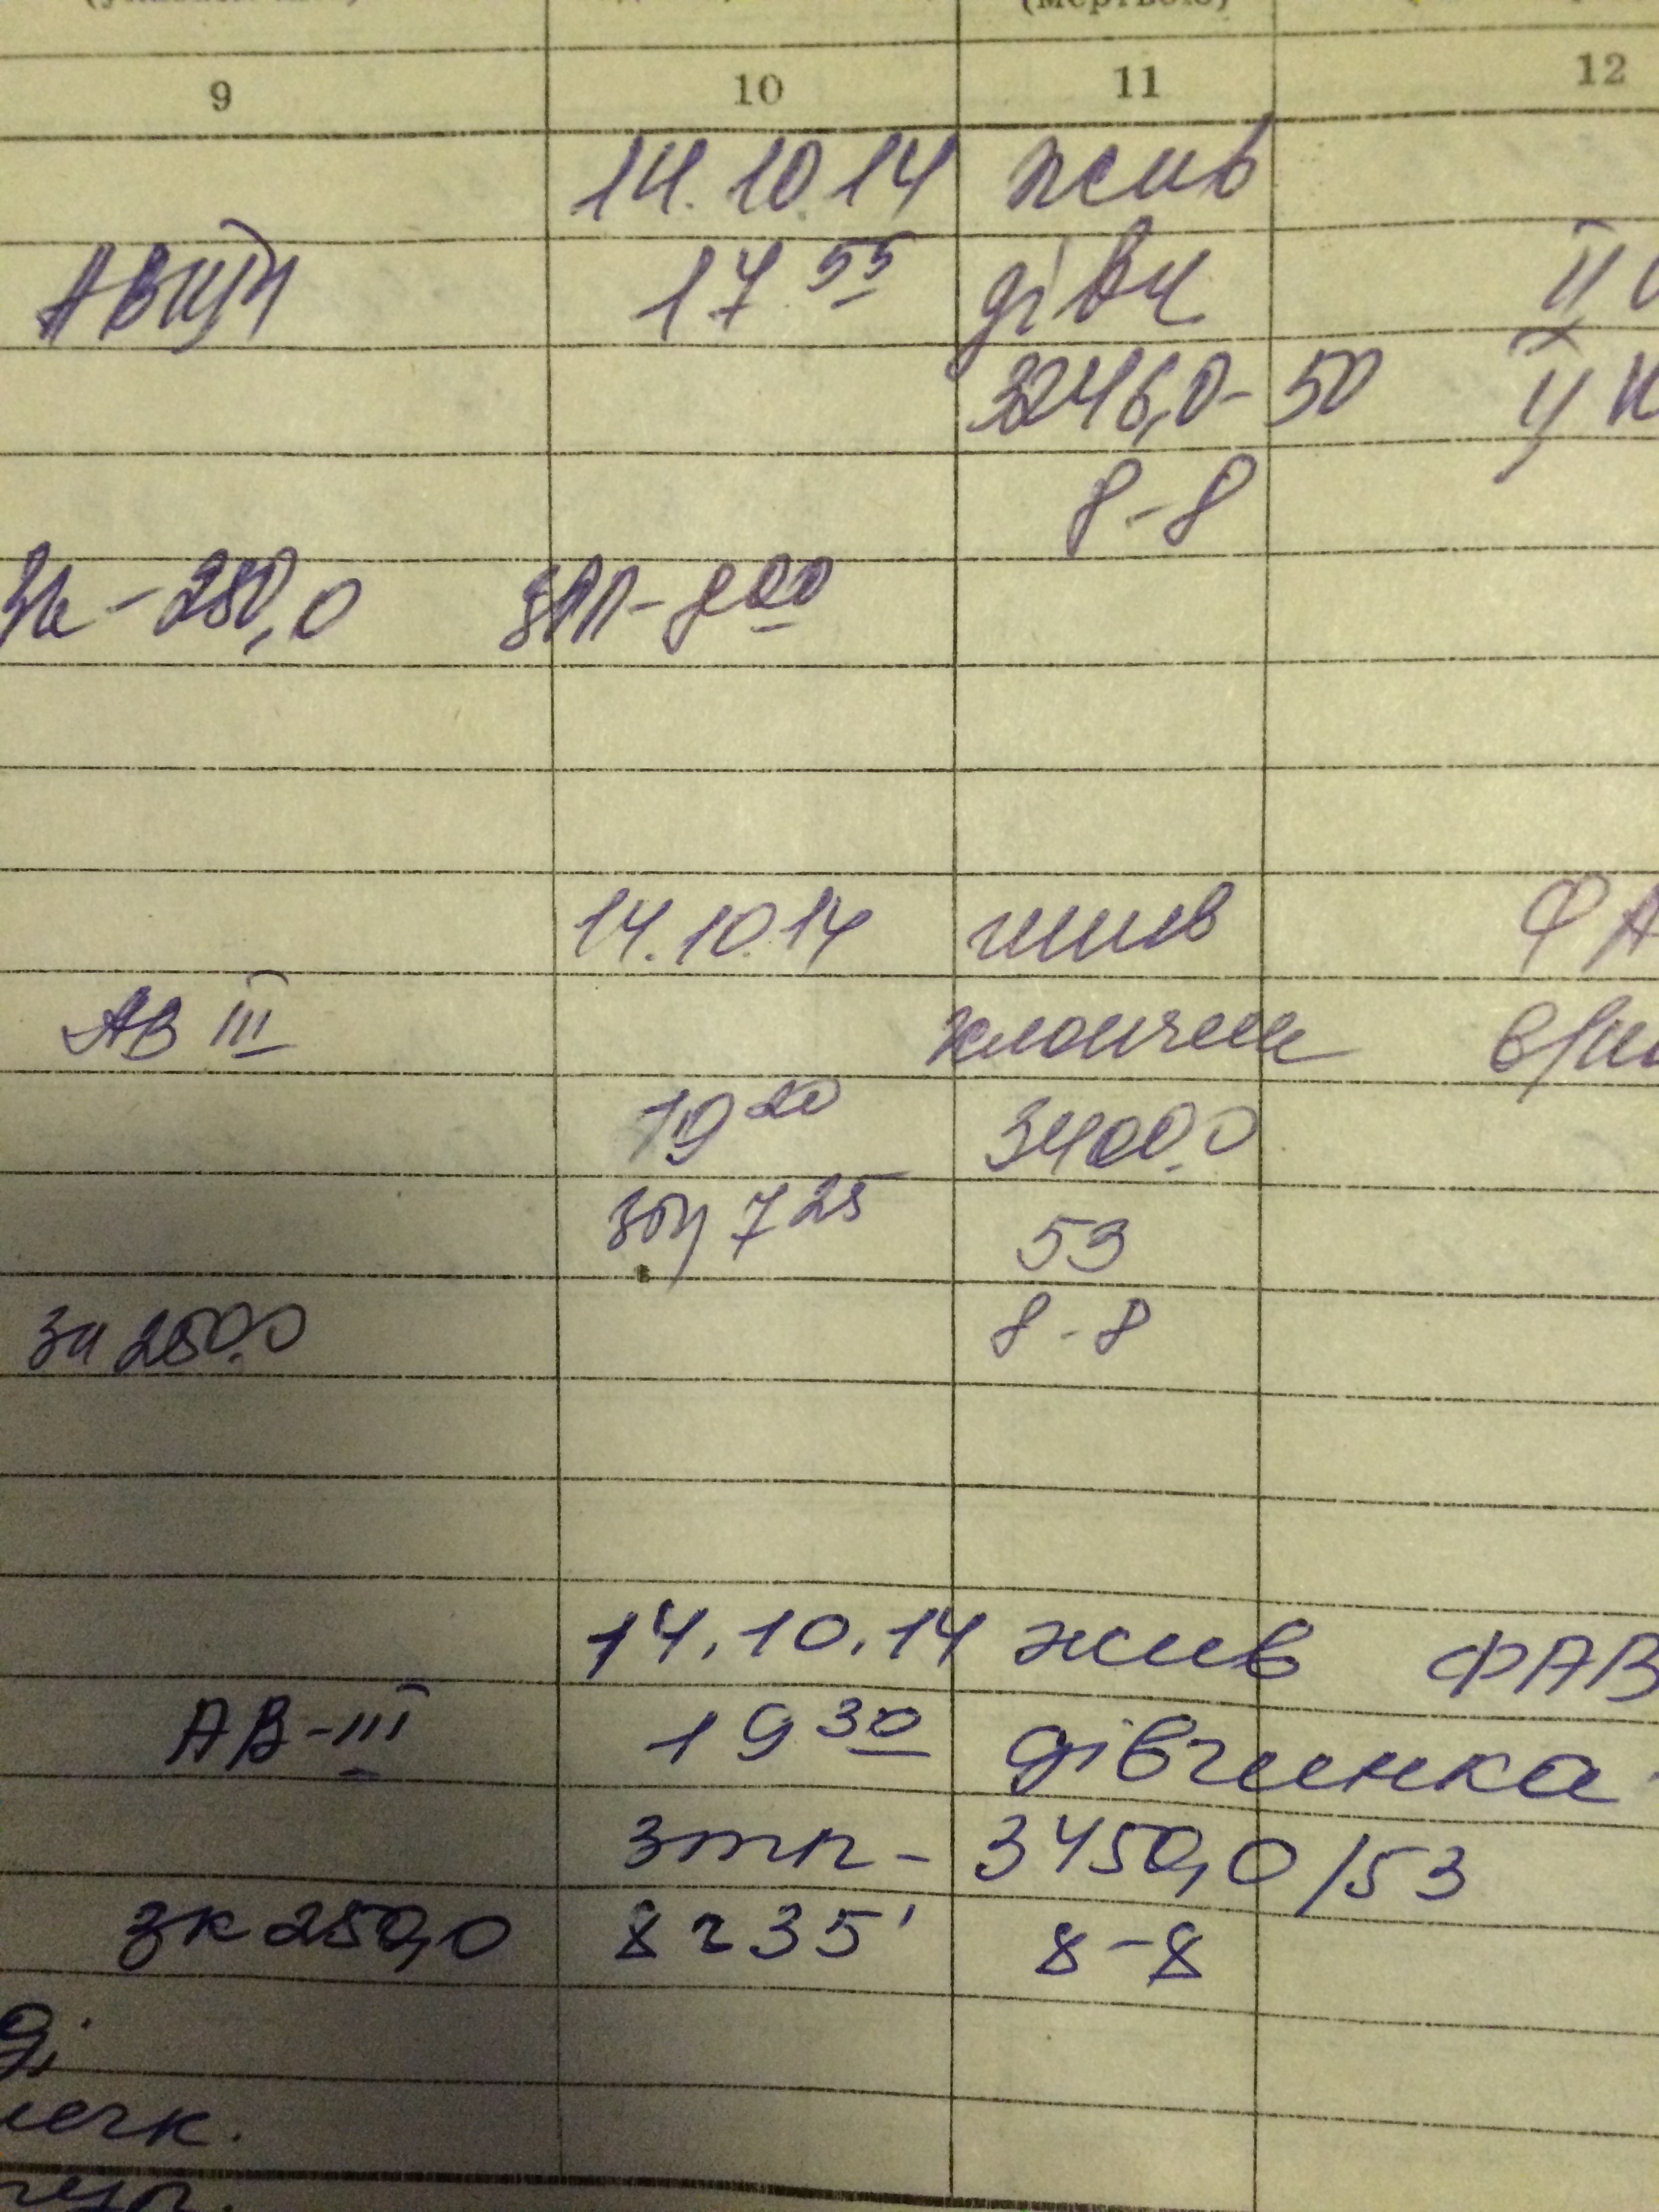 (мертвою)
9 10 11 12
14.10.14 жив
17 55 дівч
3246,0-50
8-8
зк-250,0
14.10.14 жив
АВ III хлопчик
19 20 3400,0
7 25 53
зк 250,0 8-8
14.10.14 жив ФАВ
АВ-III 19 30 дівчинка
зтп- 3450,0/53
зк 250,0 8 г 35' 8-8